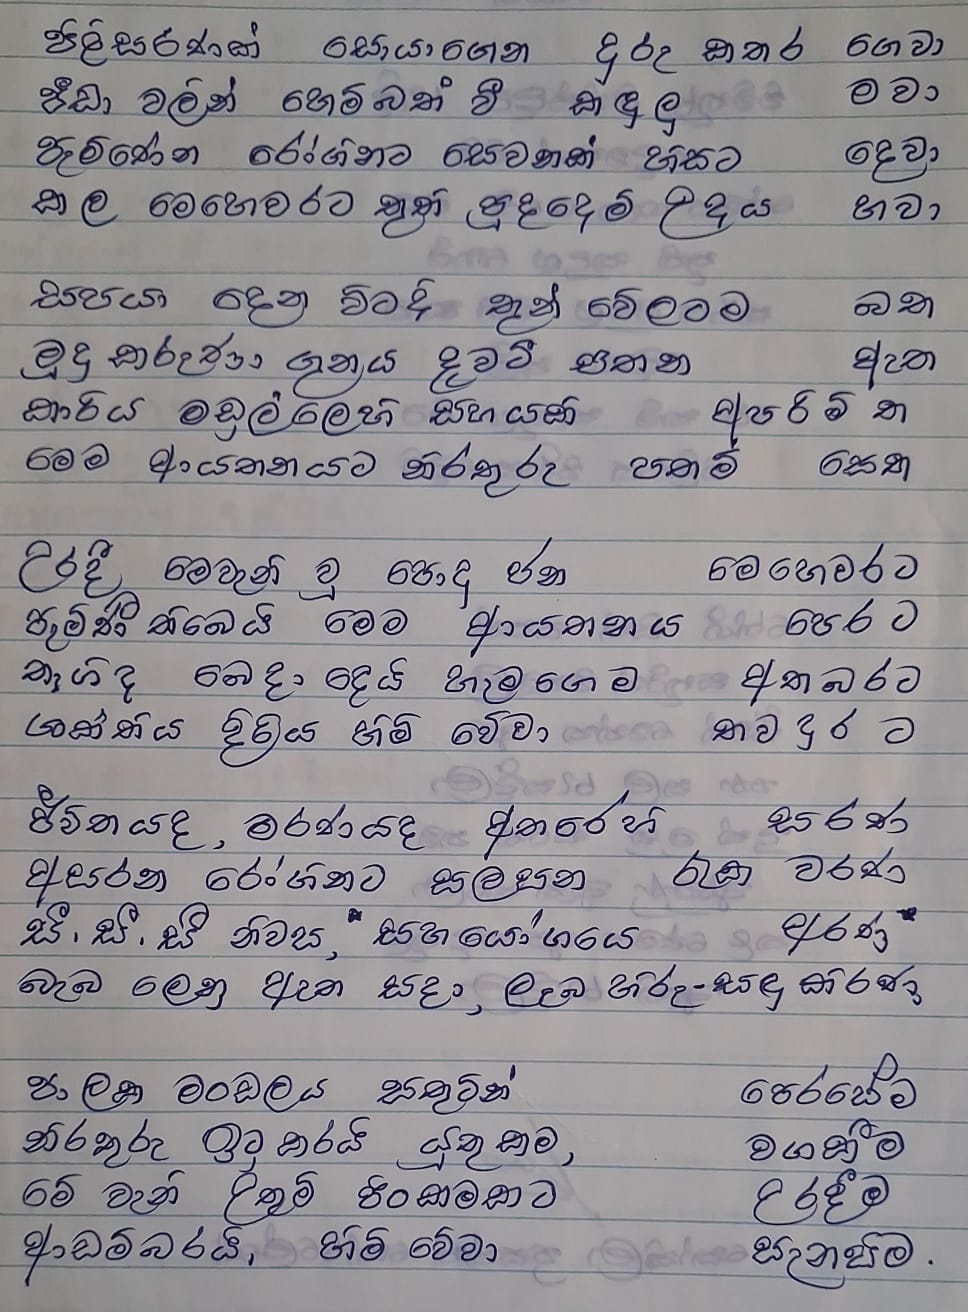 පිළිසරණක් සොයාගෙන දුරු කතර ගෙවා
පීඩා වලින් හෙම්බත් වී කඳුලු මවා
පැමිණෙන රෝගීනට සෙවනක් හිසට දෙවා
කල මෙහෙවරට තුති පුදදෙමි උදය හවා
සපයා දෙන විටදී තුන් වේලටම බත
මුදු කරුණා ගුනය දැවටී පතන ඇත
කාර්ය මඩුල්ලෙහි සහයත් අපරිමිත
මෙම ආයතනයට නිරතුරු පතමි සෙත
උරදී මෙවැනි වූ පොදු ජන මෙහෙවරට
පැමිණ තිබෙයි මෙම ආයතනය පෙරට
තෑගිද බෙදා දෙයි හැමගෙම අතබරට
ශක්තිය දිරිය හිමි වේවා තව දුරට
ජීවිතයද, මරණයද අතරෙහි සරණ
අසරන රෝගීනට සලසන රැක වරණ
සී. සී. සී නිවස, "සහයෝගයෙ අරණ"
බැබලෙනු ඇත සදා, ලැබ හිරු-සඳු කිරණ
පාලක මංඩලය සතුටින් පෙරසේම
නිරතුරු ඉටු කරයි යුතුකම, වගකීම
මේ වැනි උතුම් පිංකමකට උරදීම
ආඩම්බරයි, හිමි වේවා සැනසීම.